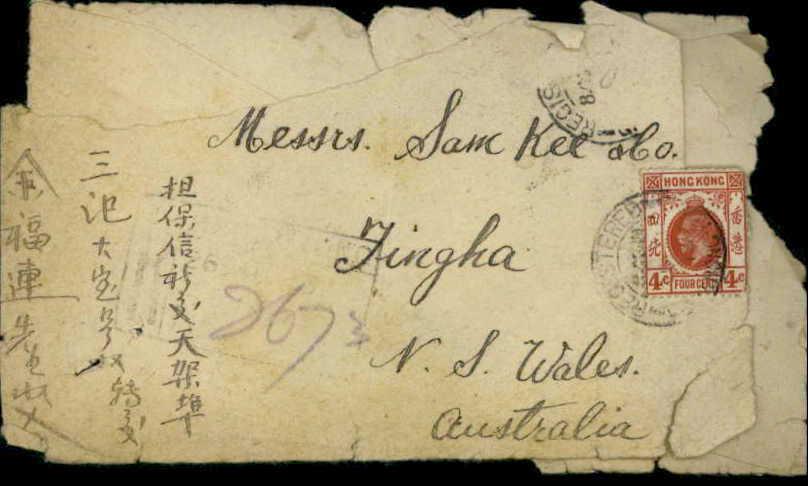 Messrs. Sam Kee & Co.
Tingha
N. S. Wales.
Australia
2673
担保信祈交天架埠
三記大宝号收轉交
福連先生收
HONG KONG
香港
四先
4c FOUR CENTS 4c
REGISTERED
REGIS